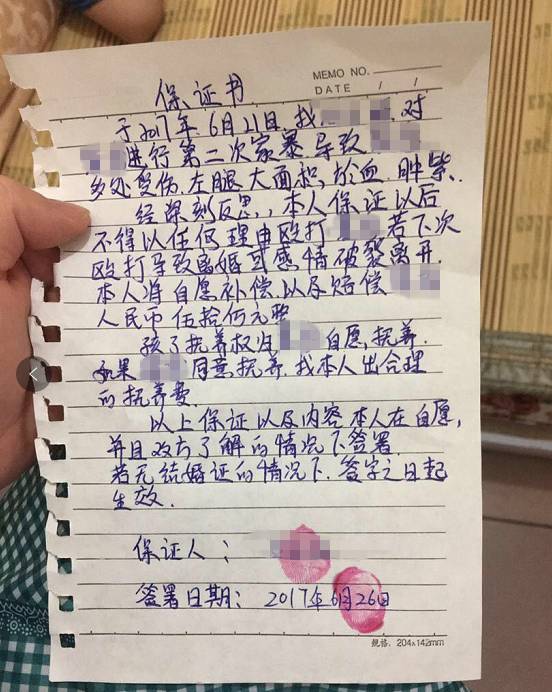 MEMO NO.
DATE / /
保证书
于2017年6月21日, 找 对
进行第二次家暴, 导致
多处受伤, 左腿大面积, 於血 肿紫.
经深刻反思, 本人保证以后
不得以任何理由殴打 若下次
殴打导致离婚或感情破裂离开.
本人将自愿补偿, 以及赔偿
人民币伍拾何元整
孩子抚养权归 自愿, 抚养.
如果 同意, 抚养. 找本人出合理
的抚养费.
以上保证以及内容本人在自愿,
并且双方了解的情况下签署.
若无结婚证的情况下. 签字之日起
生效.
保证人:
签署日期: 2017年6月26日
规格: 204x142mm